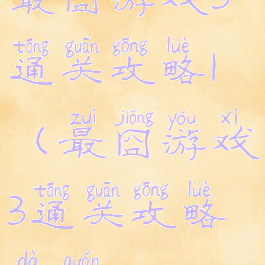 最囧游戏3
tōng guān gōng lüè
通关攻略|
zuì jiǒng yóu xì
(最囧游戏
tōng guān gōng lüè
3通关攻略
dà quán